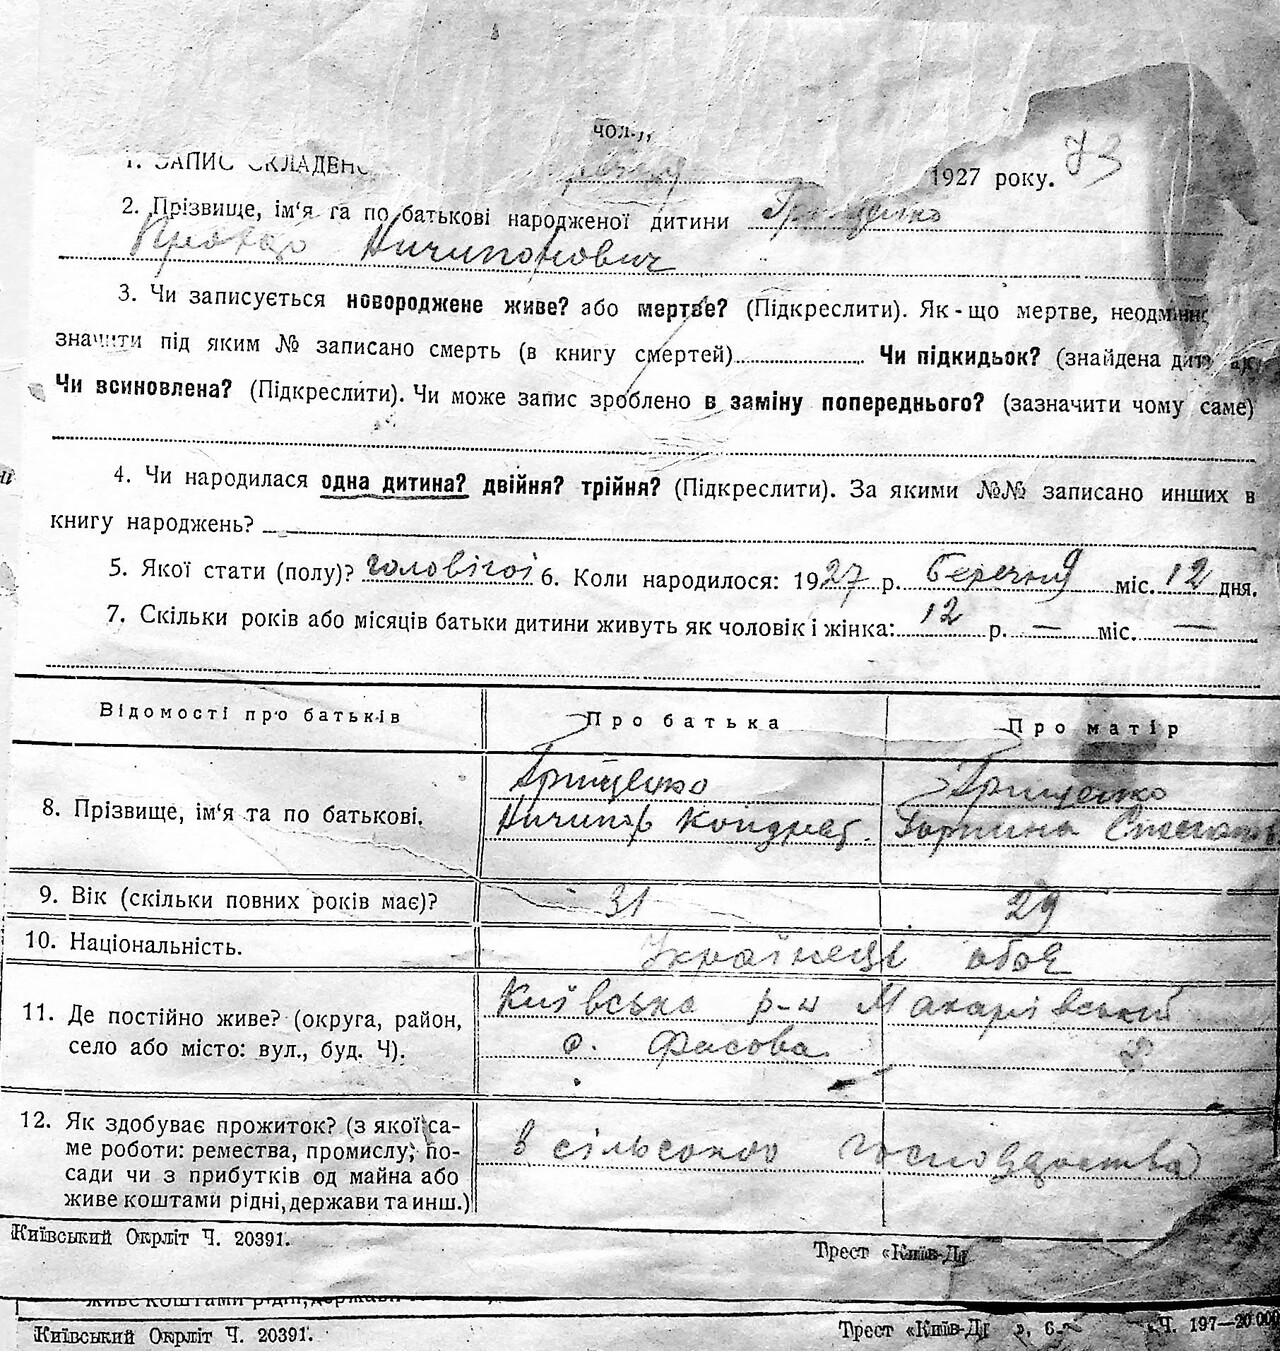 чол.
1. ЗАПИС СКЛАДЕНО березня 1927 року. 73
2. Прізвище, ім‘я та по батькові народженої дитини Грищенко
Ничипонович
3. Чи записується новороджене живе? або мертве? (Підкреслити). Як-що мертве, неодмінно
значити під яким № записано смерть (в книгу смертей) Чи підкидьок? (знайдена
Чи всиновлена? (Підкреслити). Чи може запис зроблено в заміну попереднього? (зазначити чому саме)
4. Чи народилася одна дитина? двійня? трійня? (Підкреслити). За якими №№ записано инших в
книгу народжень?
5. Якої стати (полу)? чоловічої 6. Коли народилося: 1927 р. березня міс. 12 дня.
7. Скільки років або місяців батьки дитини живуть як чоловік і жінка: 12 р. — міс. —
Відомості про батьків Про батька Про матір
Грищенко Грищенко
8. Прізвище, ім‘я та по батькові. Ничипір Кондрат. Горпина Степанов
9. Вік (скільки повних років має)? 31 29
10. Національність. Українеці обоє
11. Де постійно живе? (округа, район, Київська р-н Макарівський
село або місто: вул., буд. Ч). с. Фасова
12. Як здобуває прожиток? (з якої са-
ме роботи: ремества, промислу, по- в сільсоко господаства
сади чи з прибутків од майна або
живе коштами рідні, держави та инш.)
Київський Окрліт Ч. 20391. Трест «Київ-Д
живе коштами рідні, держави
Київський Окрліт Ч. 20391. Трест «Київ-Д р. 6. Ч. 197—20.000